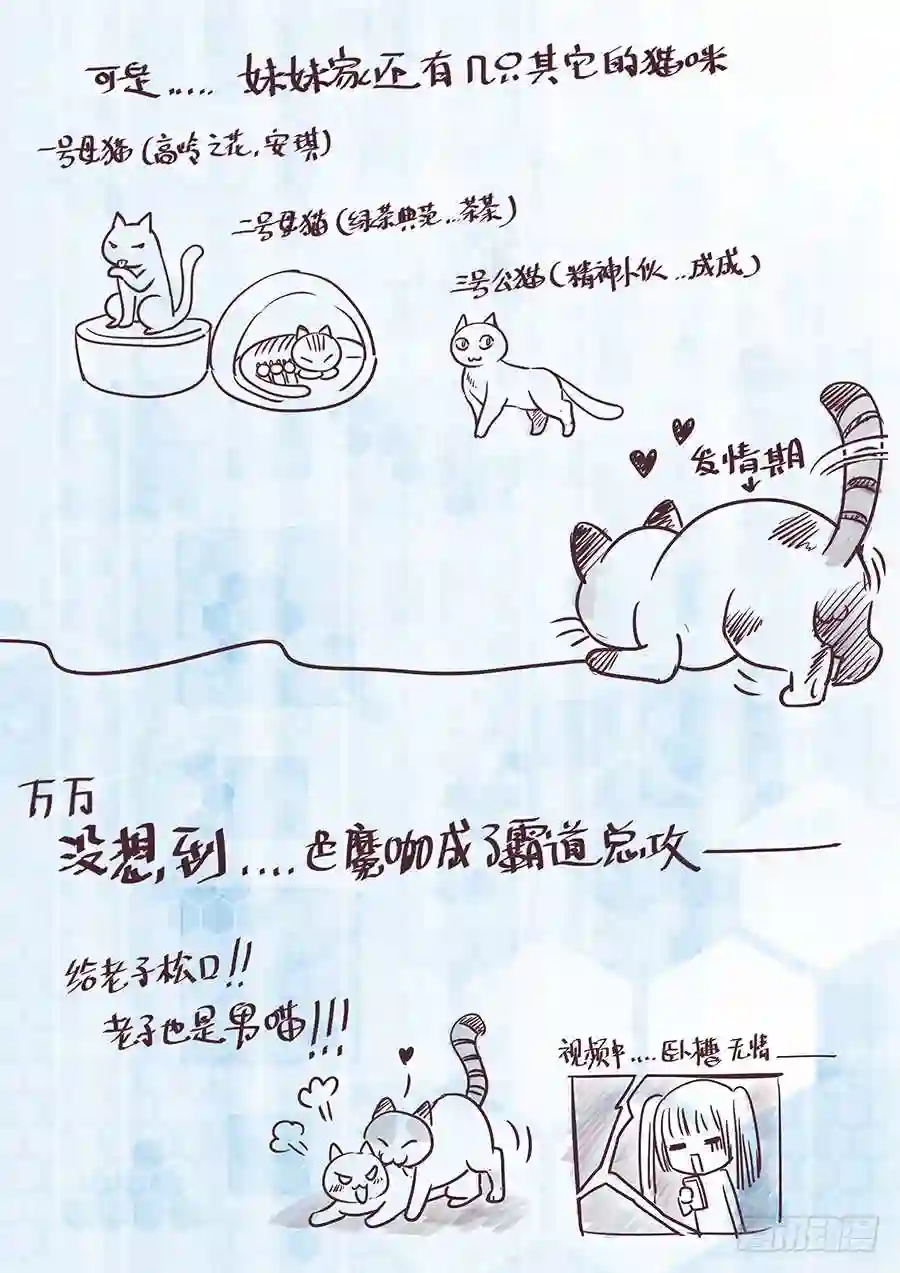 可是..... 妹妹家还有几只其它的猫咪
一号母猫(高岭之花,安琪)
二号母猫(绿茶典范..茶茶)
三号公猫(精神小伙..成成)
发情期
万万
没想,到....也魔咖成了霸道总攻——
给老子松口!!
老子也是男喵!!!
视频中....卧槽 无情——